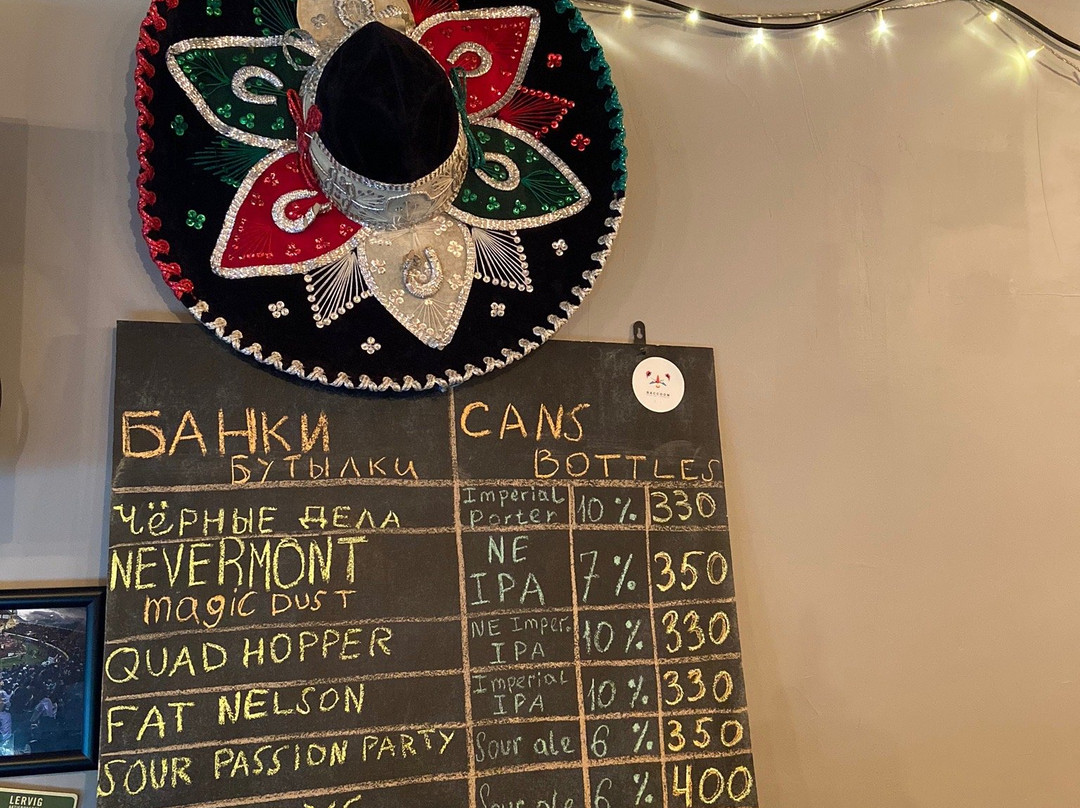 БАНКИ CANS
БУТЫЛКИ BOTTLES
ЧЁРНЫЕ ДЕЛА Imperial Porter 10 % 330
NEVERMONT NE IPA 7 % 350
magic DUST
QUAD HOPPER NE Imper. IPA 10 % 330
FAT NELSON Imperial IPA 10 % 330
SOUR PASSION PARTY Sour ale 6 % 350
Sour ale 6 % 400
LERVIG